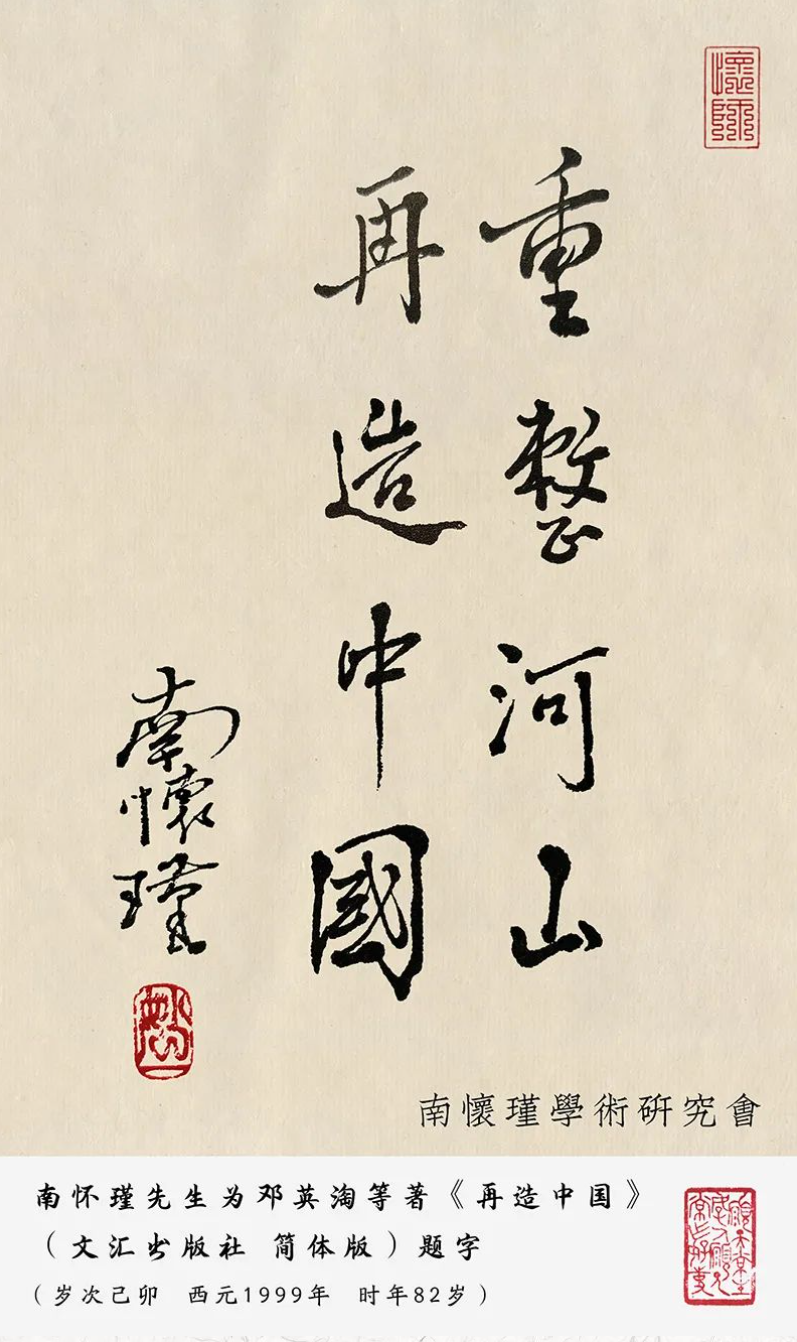 重整河山
再造中國
南懷瑾
南懷瑾學術研究會
南怀瑾先生为邓英淘等著《再造中国》
（文汇出版社 简体版）题字
（岁次己卯 西元1999年 时年82岁）
懷師